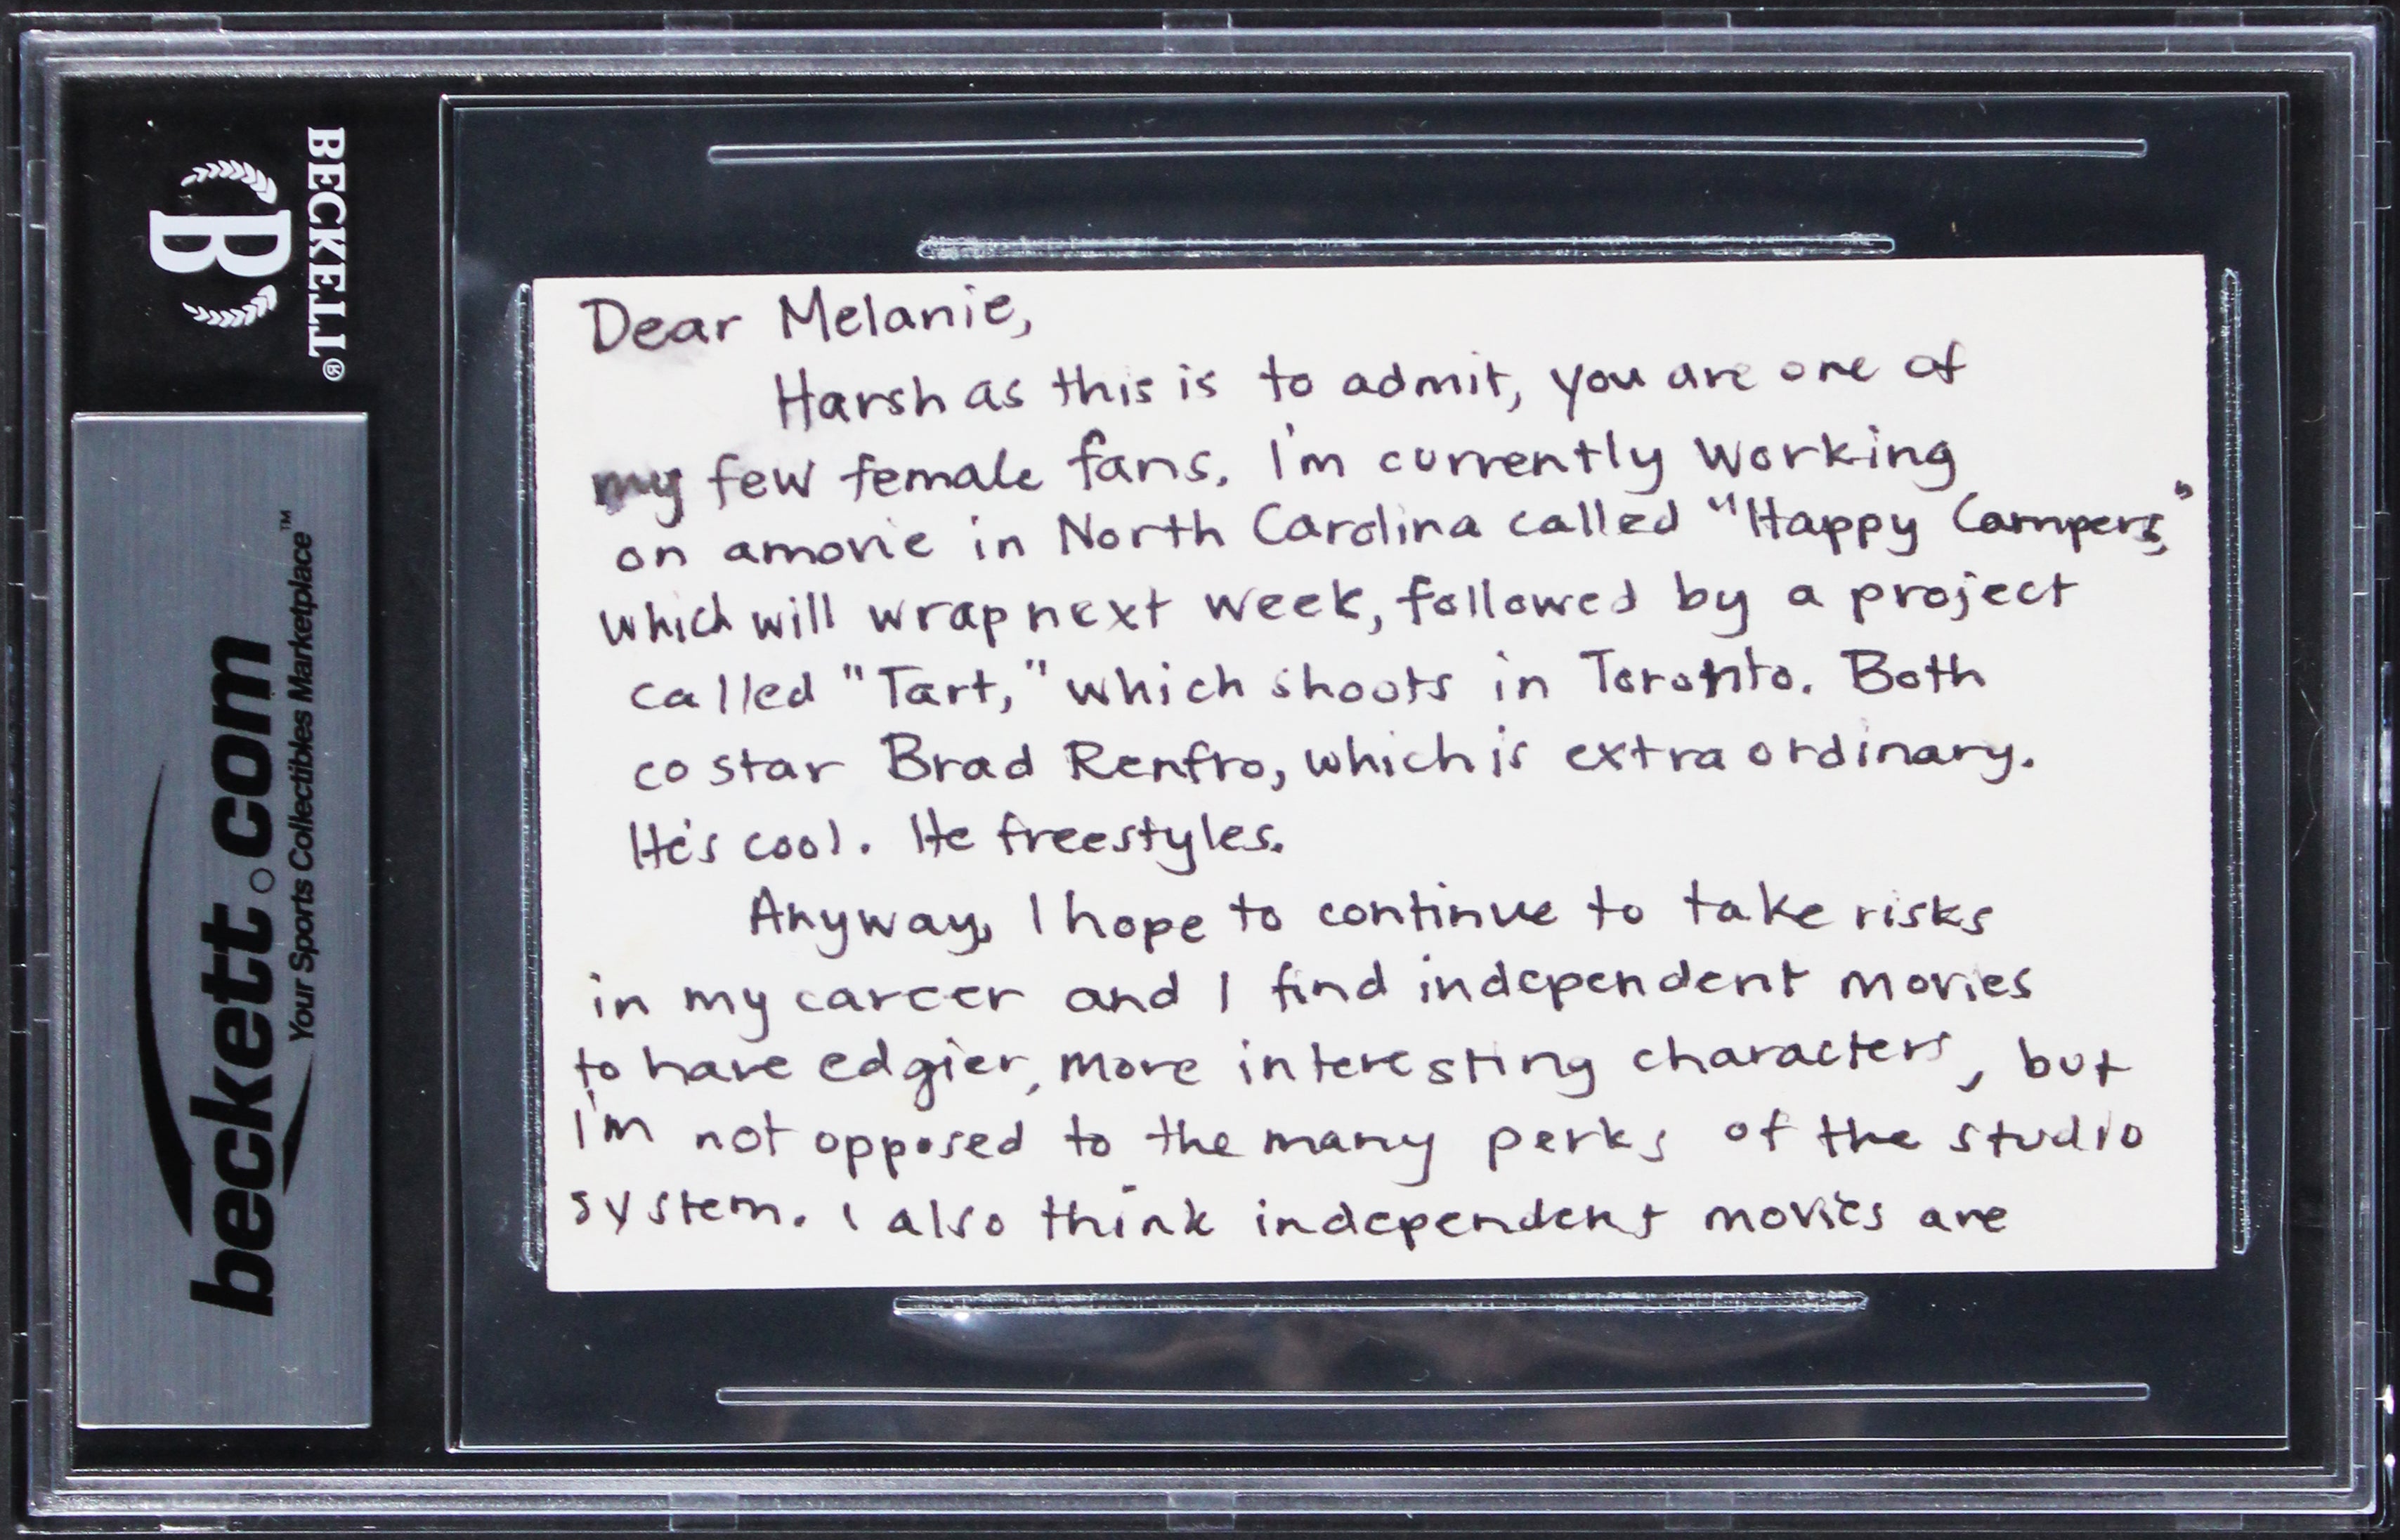 BECKETT®
B
beckett.com
Your Sports Collectibles Marketplace™
Dear Melanie,
Harsh as this is to admit, you are one of
my few female fans. I'm currently working
on a movie in North Carolina called "Happy Campers,"
which will wrap next week, followed by a project
called "Tart," which shoots in Toronto. Both
co star Brad Renfro, which is extra ordinary.
He's cool. He freestyles.
Anyway, I hope to continue to take risks
in my career and I find independent movies
to have edgier, more interesting characters, but
I'm not opposed to the many perks of the studio
system. I also think independent movies are